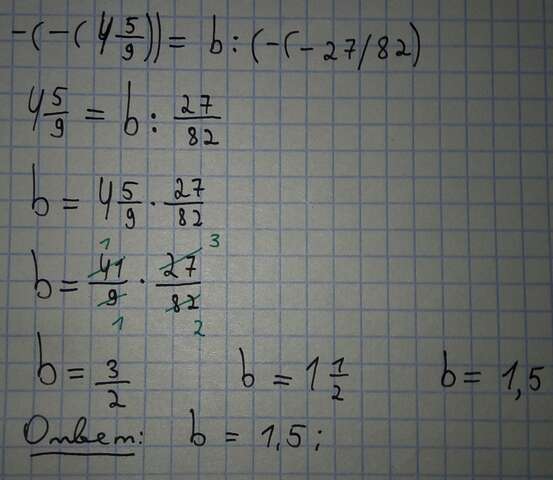 -(-(4 5/9)) = b : (-(-27/82)
4 5/9 = b : 27/82
b = 4 5/9 · 27/82
b = 41/9 · 27/82
1 3
1 2
b = 3/2 b = 1 1/2 b = 1,5
Ответ: b = 1,5;